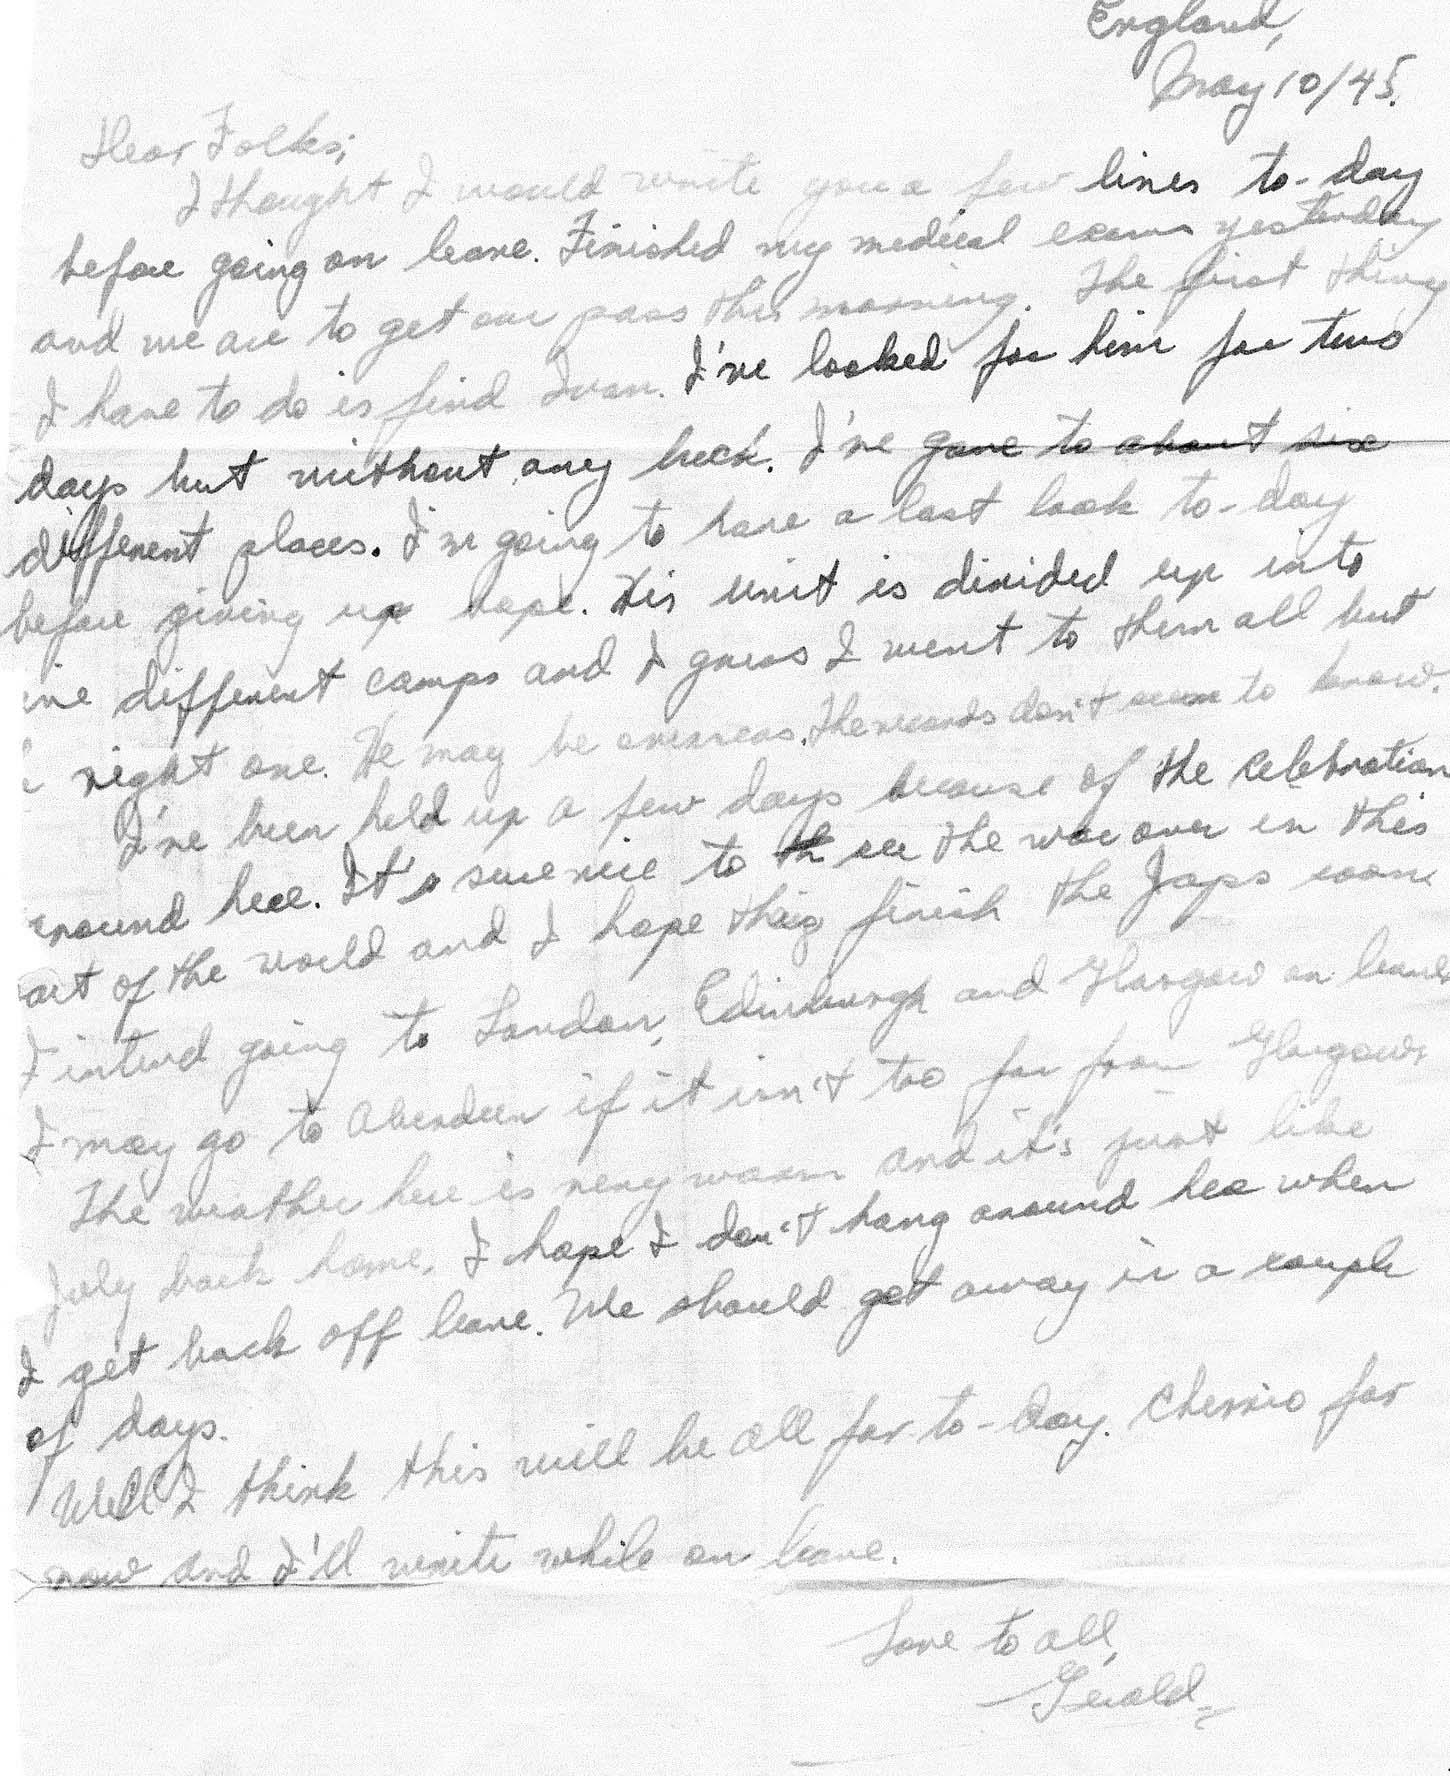 England,
May 10/45.
Dear Folks;
I thought I would write you a few lines to-day
before going on leave. Finished my medical exam yesterday
and we are to get our pass this morning. The first thing
I have to do is find Ivan. I've looked for him for two
days but without any luck. I've gone to about six
different places. I'm going to have a last look to-day
before giving up hope. His unit is divided up into
different camps and I guess I went to them all but
right one. He may be overseas. The records don't seem to know.
I've been held up a few days because of the celebration
around here. It's sure nice to see the war over in this
art of the world and I hope they finish the Japs soon.
I intend going to London, Edinburgh and Glasgow on leave
I may go to Aberdeen if it isn't too far from Glasgow.
The weather here is very warm and it's just like
July back home. I hope I don't hang around here when
I get back off leave. We should get away in a couple
of days.
Well I think this will be all for to-day. Cherrio for
now and I'll write while on leave.
Love to all,
Gerald